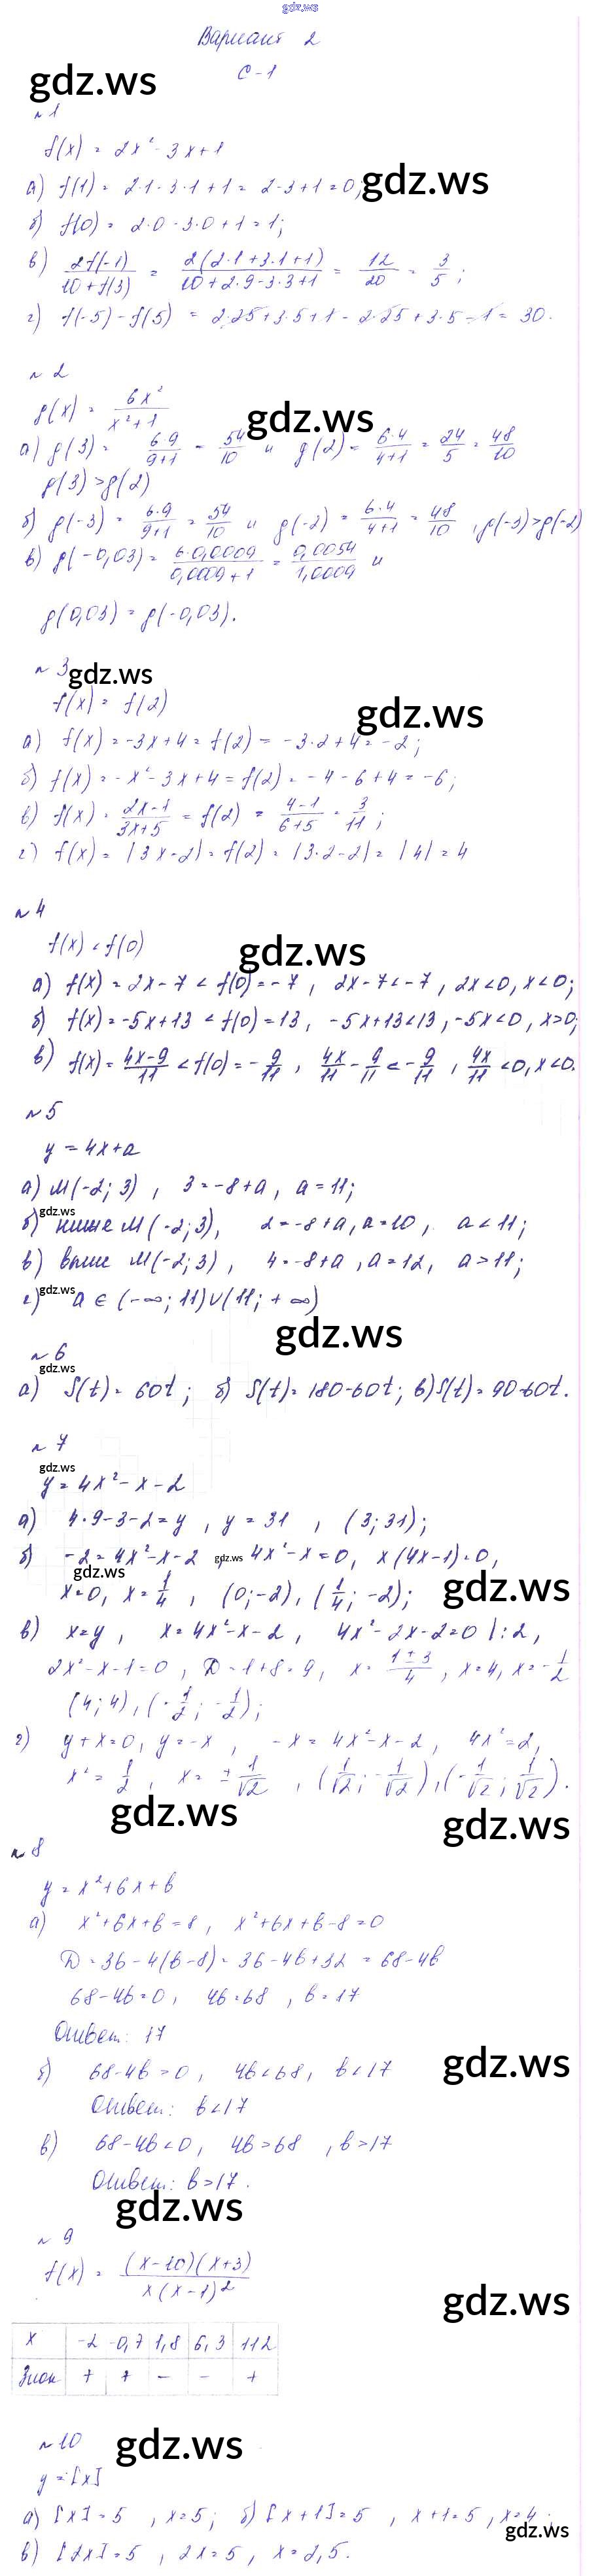 gdz.ws
Вариант 2
С-1
gdz.ws
№1
f(x) = 2x² - 3x + 1
а) f(1) = 2·1 - 3·1 + 1 = 2 - 3 + 1 = 0; gdz.ws
б) f(0) = 2·0 - 3·0 + 1 = 1;
в) 2f(-1)/(10+f(3)) = 2(2·1+3·1+1)/(10+2·9-3·3+1) = 12/20 = 3/5;
г) f(-5) - f(5) = 2·25+3·5+1-2·25+3·5-1 = 30.
№2
g(x) = 6x²/(x²+1) gdz.ws
а) g(3) = 6·9/(9+1) = 54/10 и g(2) = 6·4/(4+1) = 24/5 = 48/10
g(3) > g(2)
б) g(-3) = 6·9/(9+1) = 54/10 и g(-2) = 6·4/(4+1) = 48/10, g(-3) > g(-2)
в) g(-0,03) = 6·0,0009/(0,0009+1) = 0,0054/1,0009 и
g(0,03) = g(-0,03).
№3 gdz.ws
f(x) = f(2) gdz.ws
а) f(x) = -3x+4 = f(2) = -3·2+4 = -2;
б) f(x) = -x²-3x+4 = f(2) = -4-6+4 = -6;
в) f(x) = (2x-1)/(3x+5) = f(2) = (4-1)/(6+5) = 3/11;
г) f(x) = |3x-2| = f(2) = |3·2-2| = |4| = 4
№4
f(x) < f(0) gdz.ws
а) f(x) = 2x-7 < f(0) = -7, 2x-7 < -7, 2x < 0, x < 0;
б) f(x) = -5x+13 < f(0) = 13, -5x+13 < 13, -5x < 0, x > 0;
в) f(x) = (4x-9)/11 < f(0) = -9/11, 4x/11 - 9/11 < -9/11, 4x/11 < 0, x < 0.
№5
y = 4x+a
а) M(-2; 3), 3 = -8+a, a = 11;
gdz.ws
б) ниже M(-2; 3), 2 = -8+a, a = 10, a < 11;
в) выше M(-2; 3), 4 = -8+a, a = 12, a > 11;
gdz.ws
г) a ∈ (-∞; 11)∪(11; +∞)
gdz.ws
№6
gdz.ws
а) S(t) = 60t; б) S(t) = 180-60t; в) S(t) = 90-60t.
№7
gdz.ws
y = 4x²-x-2
а) 4·9-3-2 = y, y = 31, (3; 31);
б) -2 = 4x²-x-2, gdz.ws 4x²-x = 0, x(4x-1) = 0,
gdz.ws
x = 0, x = 1/4, (0; -2), (1/4; -2); gdz.ws
в) x = y, x = 4x²-x-2, 4x²-2x-2 = 0 |:2,
2x²-x-1 = 0, D = 1+8 = 9, x = (1±3)/4, x = 4, x = -1/2
(4; 4), (-1/2; -1/2);
г) y+x = 0, y = -x, -x = 4x²-x-2, 4x² = 2,
x² = 1/2, x = ±1/√2, (1/√2; -1/√2), (-1/√2; 1/√2).
gdz.ws gdz.ws
№8
y = x²+6x+b
а) x²+6x+b = 8, x²+6x+b-8 = 0
D = 36-4(b-8) = 36-4b+32 = 68-4b
68-4b = 0, 4b = 68, b = 17
Ответ: 17
gdz.ws
б) 68-4b > 0, 4b < 68, b < 17
Ответ: b < 17
в) 68-4b < 0, 4b > 68, b > 17
Ответ: b > 17.
gdz.ws
№9
f(x) = (x-10)(x+3)/x(x-1)²
gdz.ws
x -2 -0,7 1,8 6,3 112
Знак + + - - +
№10 gdz.ws
y = [x]
а) [x] = 5, x = 5; б) [x+1] = 5, x+1 = 5, x = 4;
gdz.ws
в) [2x] = 5, 2x = 5, x = 2,5.